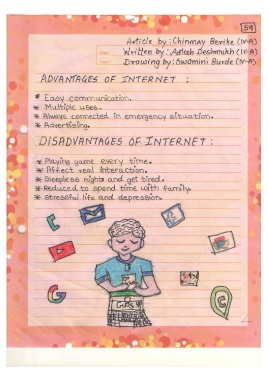 59
Article by : Chinmay Berike (IV-A)
Written by : Aadesh Deshmukh (IV-A)
Drawing by : Swamini Burde (IV-A)
ADVANTAGES OF INTERNET :
* Easy communication.
* Multiple uses.
* Always connected in emergency situation.
* Advertising.
DISADVANTAGES OF INTERNET :
* Playing game every time.
* Affect real interaction.
* Sleepless nights and get tired.
* Reduced to spend time with family.
* Stressful life and depression.
G